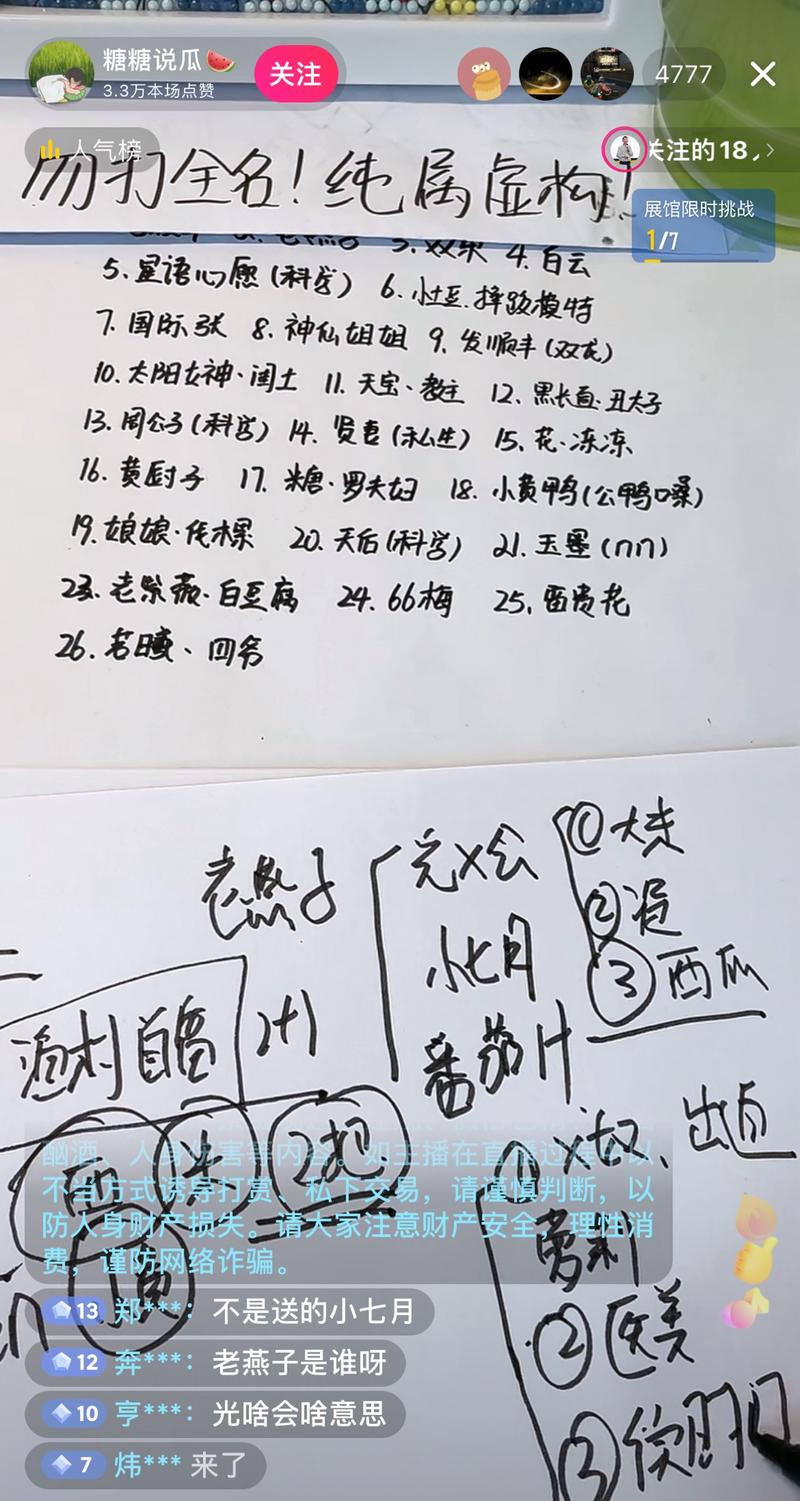 糖糖说瓜🍉
3.3万本场点赞
关注
4777
人气榜
关注的18
勿打全名！纯属虚构！
展馆限时挑战
1/7
4.白云
5.星语心愿(科学) 6.小过.摔跤模特
7.国际张 8.神仙姐姐 9.发顺丰(双龙)
10.太阳女神·闰土 11.天宝·教主 12.黑长直·丑太子
13.周公子(科学) 14.贤妻(私生) 15.花·冻冻
16.黄厨子 17.米唐·罗夫妇 18.小黄鸭(公鸭嗓)
19.娘娘·伐木累 20.天后(科学) 21.玉墨(nn)
23.老紫薇·白豆腐 24.66梅 25.面贵花
26.若曦、四爷
老燕子
光X会
小七月
番茄汁
①大夫
③西瓜
渔村
2+1
4
2起
出道
萝利
②医美
③
酗酒、人身伤害等内容。如主播在直播过程中以
不当方式诱导打赏、私下交易，请谨慎判断，以
防人身财产损失。请大家注意财产安全，理性消
费，谨防网络诈骗。
13 郑***：不是送的小七月
12 奔***：老燕子是谁呀
10 亨***：光啥会啥意思
7 炜*** 来了